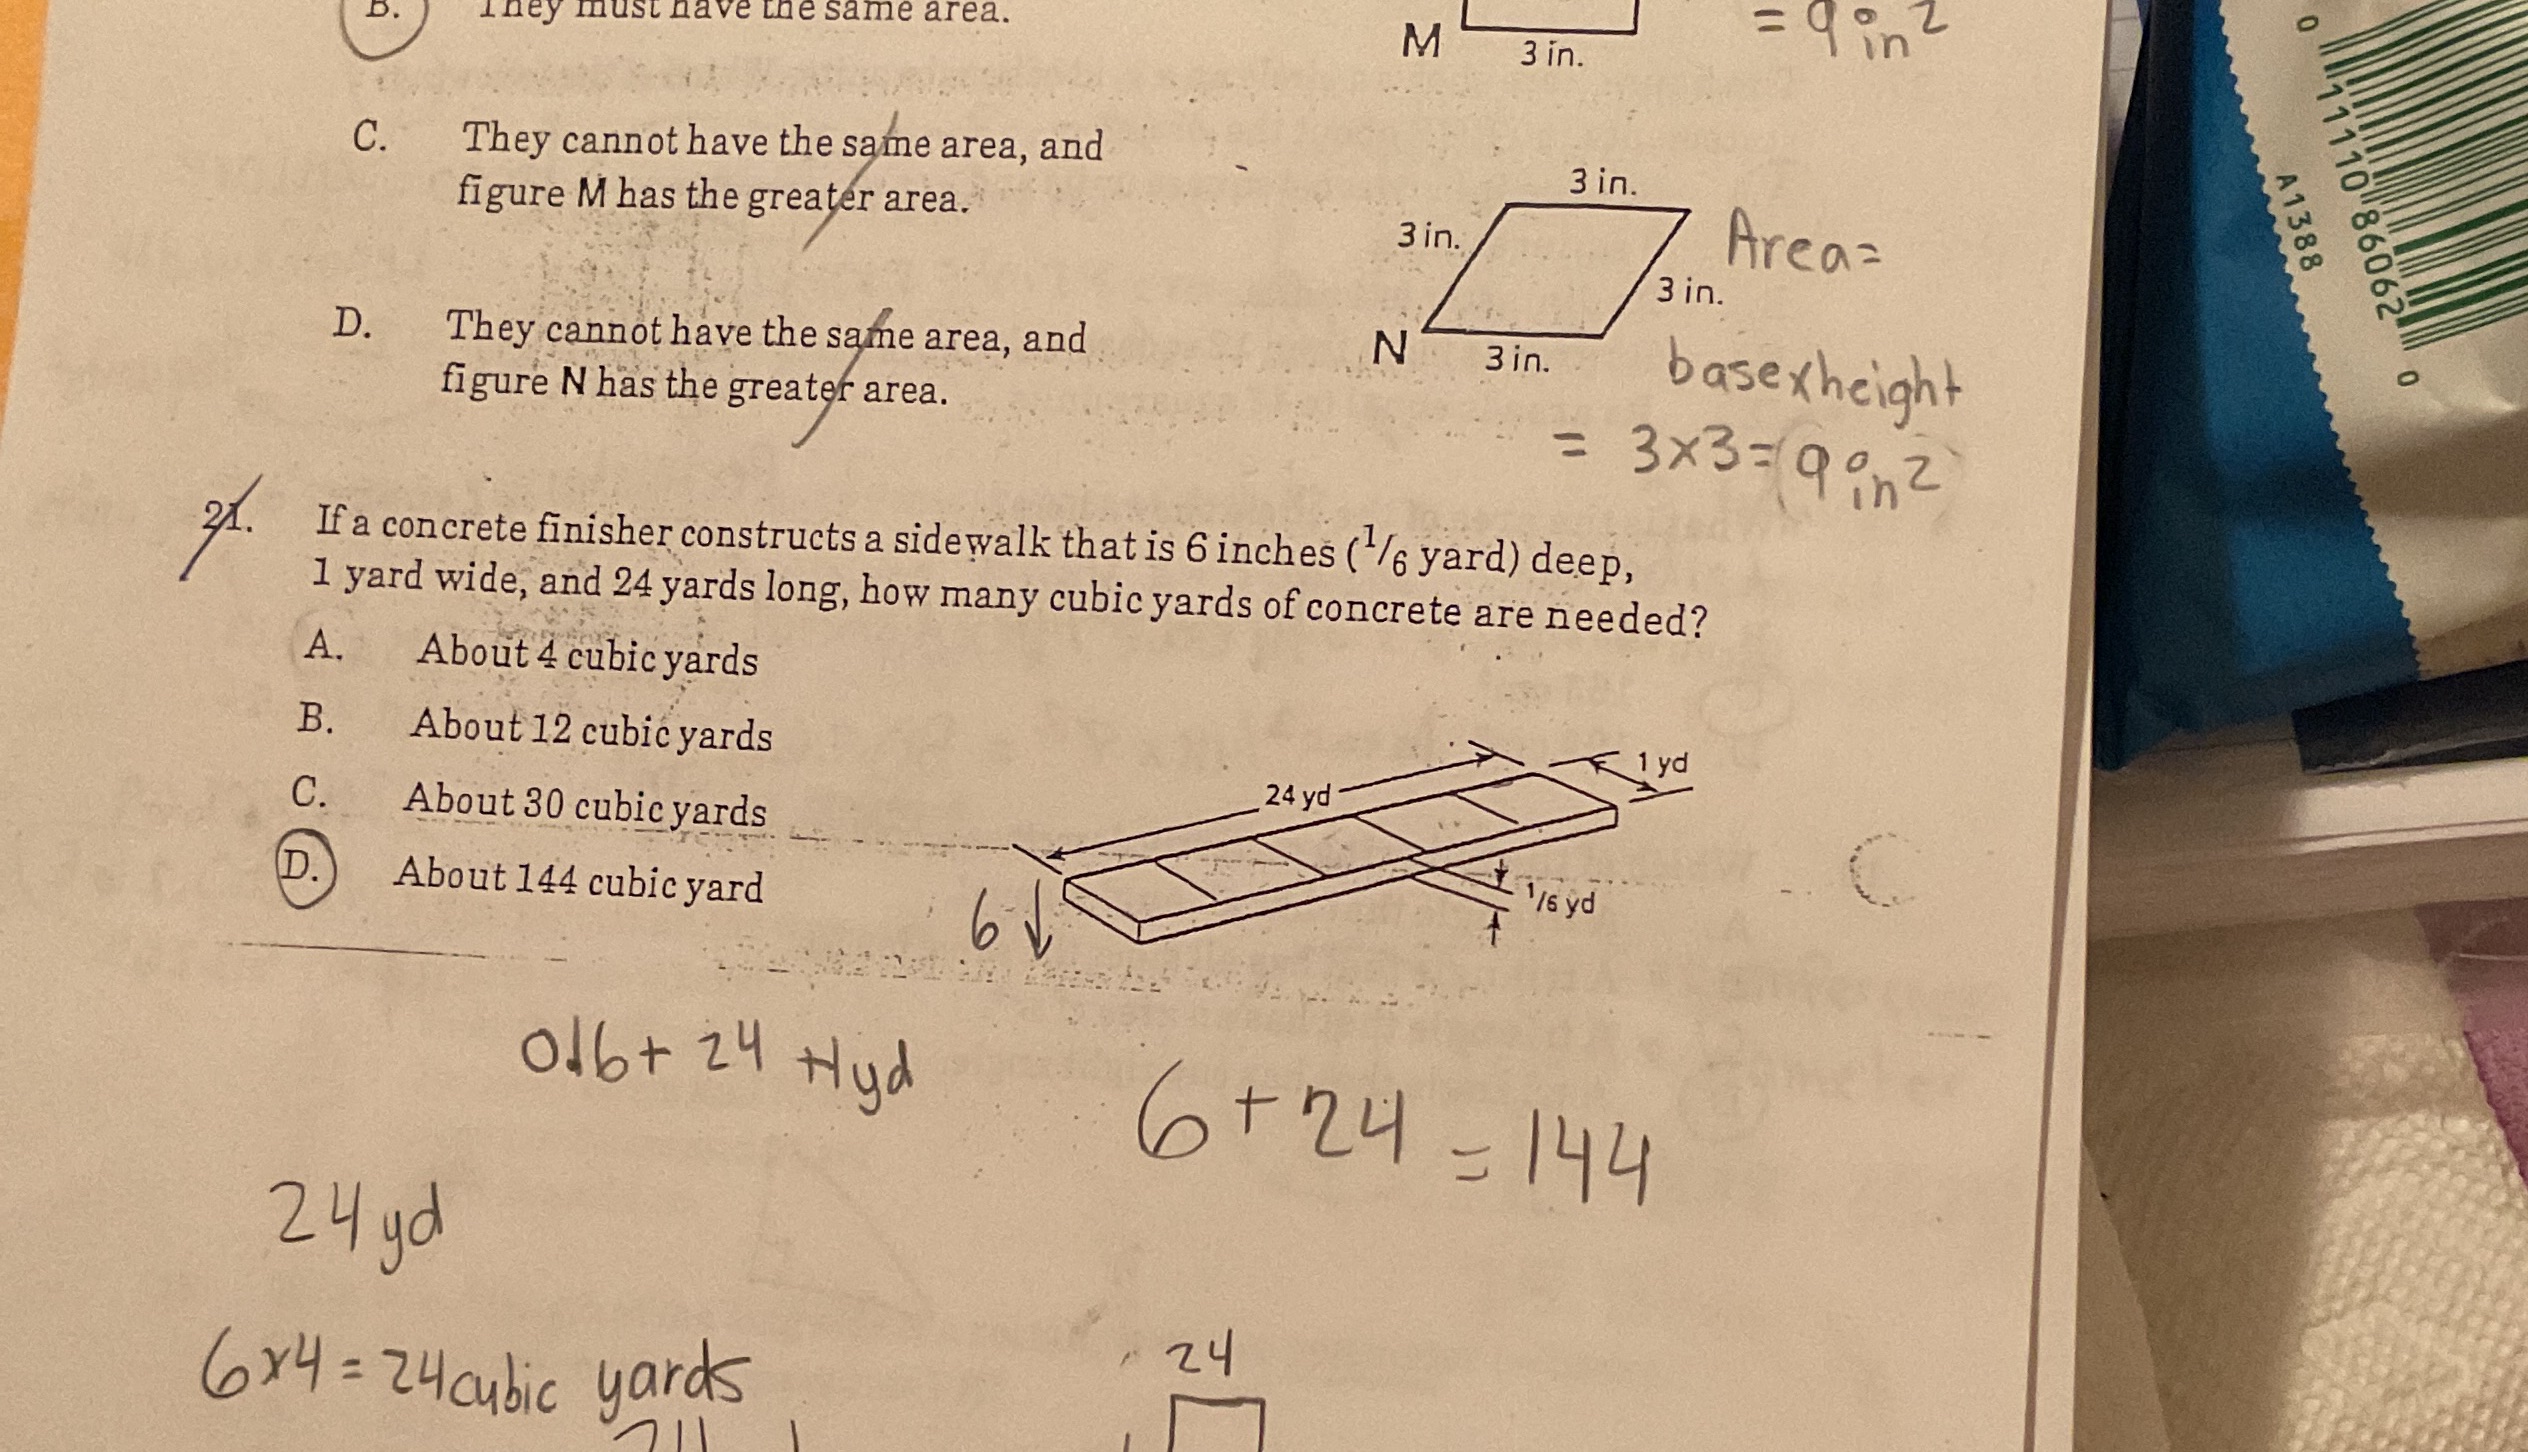 B. They must have the same area.
M
3 in.
= 9 in²
C. They cannot have the same area, and
figure M has the greater area.
3 in.
3 in.
3 in.
N
3 in.
Area=
basexheight
= 3x3= 9 in²
D. They cannot have the same area, and
figure N has the greater area.
21. If a concrete finisher constructs a sidewalk that is 6 inches (1/6 yard) deep,
1 yard wide, and 24 yards long, how many cubic yards of concrete are needed?
A. About 4 cubic yards
B. About 12 cubic yards
C. About 30 cubic yards
D. About 144 cubic yard
24 yd
1 yd
1/6 yd
6
0.16+ 24 +1yd
6+24 = 144
24yd
6x4=24cubic yards
24
0 11110 86062 0
A1388